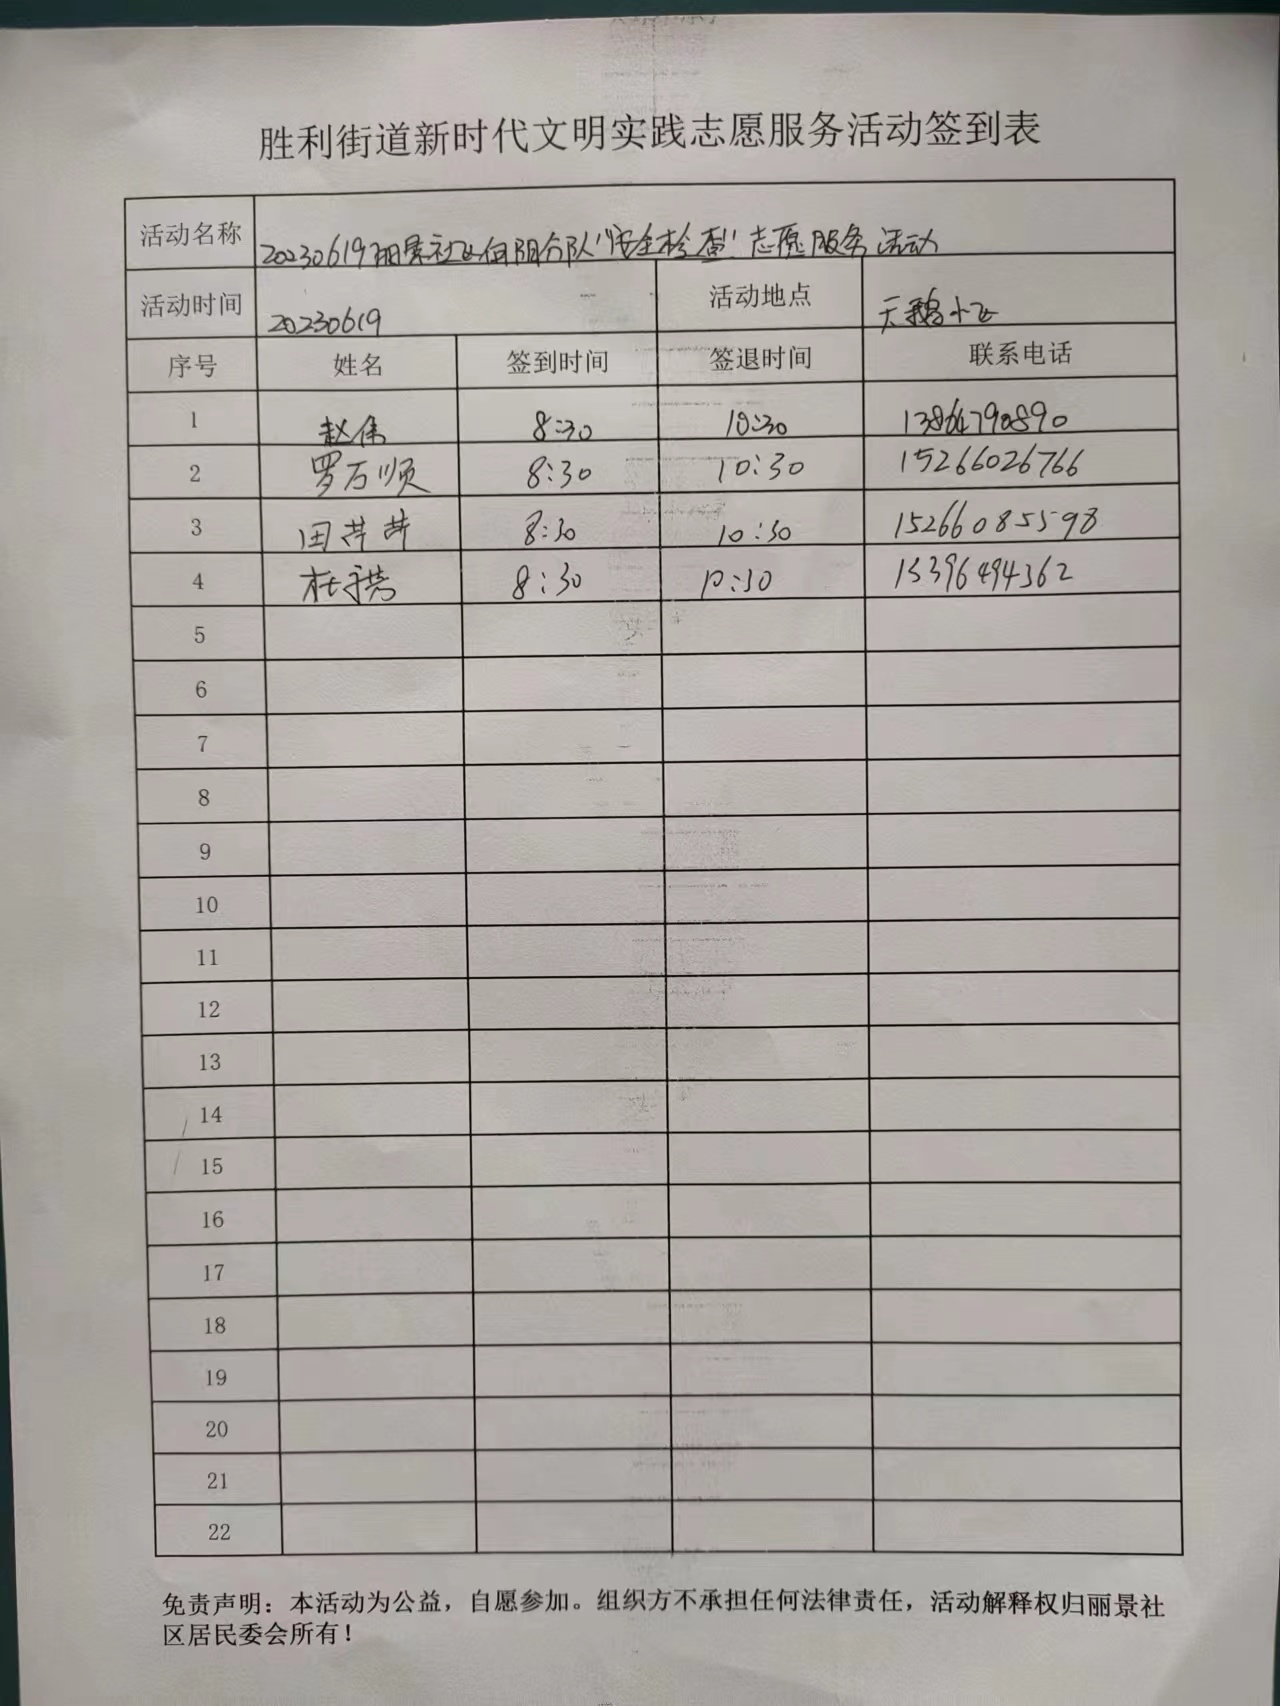 胜利街道新时代文明实践志愿服务活动签到表
活动名称 20230619丽景社区向阳分队“安全检查”志愿服务活动
活动时间 20230619 活动地点 天鹅小区
序号 姓名 签到时间 签退时间 联系电话
1 赵伟 8:30 10:30 13864790890
2 罗万顺 8:30 10:30 15266026766
3 田芹芹 8:30 10:30 15266085598
4 杜秀芳 8:30 10:30 15396494362
5
6
7
8
9
10
11
12
13
14
15
16
17
18
19
20
21
22
免责声明：本活动为公益，自愿参加。组织方不承担任何法律责任，活动解释权归丽景社
区居民委会所有！